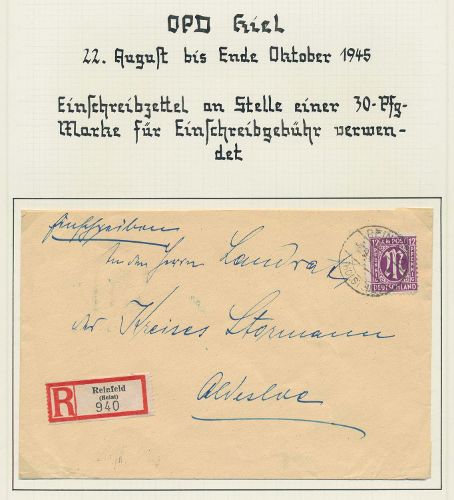 OPD Kiel
22. August bis Ende Oktober 1945
Einschreibzettel an Stelle einer 30-Pfg-
Marke für Einschreibgebühr verwen-
det
Einschreiben
12 AM POST 12
M
DEUTSCHLAND
An den Herrn Landrat
des Kreises Stormann
Oldesloe
R
Reinfeld
(Holst)
940